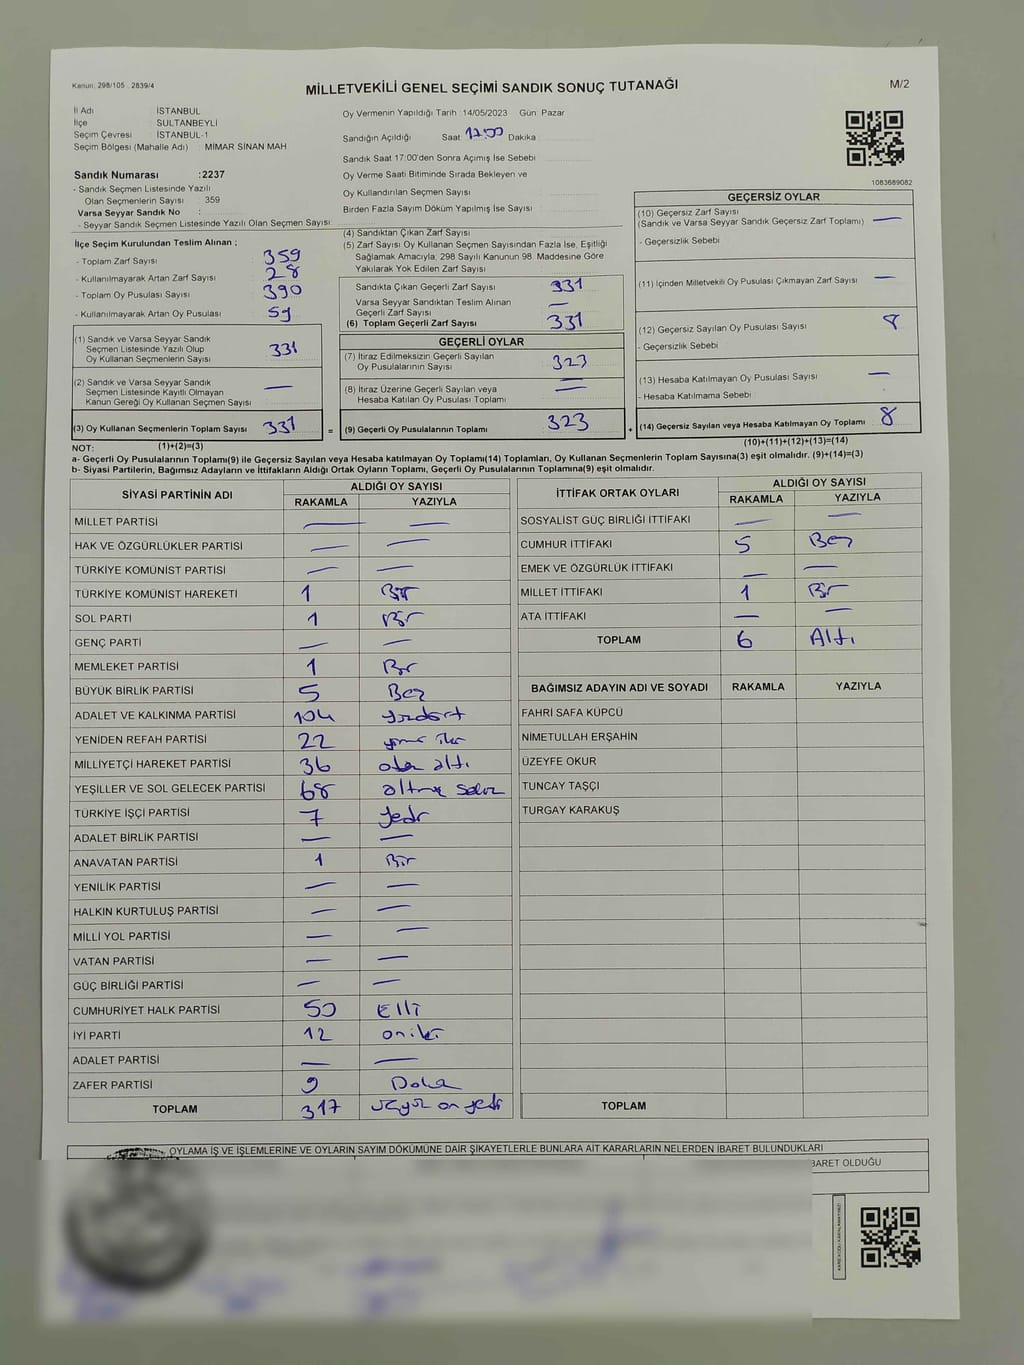 Kanun: 298/105 . 2839/4
MİLLETVEKİLİ GENEL SEÇİMİ SANDIK SONUÇ TUTANAĞI
M/2
İl Adı İSTANBUL
İlçe SULTANBEYLİ
Seçim Çevresi : İSTANBUL-1
Seçim Bölgesi (Mahalle Adı) : MİMAR SİNAN MAH
Sandık Numarası :2237
- Sandık Seçmen Listesinde Yazılı
Olan Seçmenlerin Sayısı : 359
Varsa Seyyar Sandık No :
- Seyyar Sandık Seçmen Listesinde Yazılı Olan Seçmen Sayısı:
İlçe Seçim Kurulundan Teslim Alınan ;
- Toplam Zarf Sayısı : 359
- Kullanılmayarak Artan Zarf Sayısı : 28
- Toplam Oy Pusulası Sayısı : 390
- Kullanılmayarak Artan Oy Pusulası : 59
(1) Sandık ve Varsa Seyyar Sandık
Seçmen Listesinde Yazılı Olup
Oy Kullanan Seçmenlerin Sayısı 331
(2) Sandık ve Varsa Seyyar Sandık
Seçmen Listesinde Kayıtlı Olmayan
Kanun Gereği Oy Kullanan Seçmen Sayısı —
(3) Oy Kullanan Seçmenlerin Toplam Sayısı 331
Oy Vermenin Yapıldığı Tarih :14/05/2023 Gün: Pazar
Sandığın Açıldığı Saat 17:00 Dakika
Sandık Saat 17:00'den Sonra Açımış İse Sebebi
Oy Verme Saati Bitiminde Sırada Bekleyen ve
Oy Kullandırılan Seçmen Sayısı
Birden Fazla Sayım Döküm Yapılmış İse Sayısı
(4) Sandıktan Çıkan Zarf Sayısı
(5) Zarf Sayısı Oy Kullanan Seçmen Sayısından Fazla İse, Eşitliği
Sağlamak Amacıyla, 298 Sayılı Kanunun 98. Maddesine Göre
Yakılarak Yok Edilen Zarf Sayısı
Sandıkta Çıkan Geçerli Zarf Sayısı 331
Varsa Seyyar Sandıktan Teslim Alınan
Geçerli Zarf Sayısı —
(6) Toplam Geçerli Zarf Sayısı 331
GEÇERLİ OYLAR
(7) İtiraz Edilmeksizin Geçerli Sayılan
Oy Pusulalarının Sayısı 323
(8) İtiraz Üzerine Geçerli Sayılan veya
Hesaba Katılan Oy Pusulası Toplamı —
= (9) Geçerli Oy Pusulalarının Toplamı 323 +
1083689082
GEÇERSİZ OYLAR
(10) Geçersiz Zarf Sayısı
(Sandık ve Varsa Seyyar Sandık Geçersiz Zarf Toplamı) —
- Geçersizlik Sebebi
(11) İçinden Milletvekili Oy Pusulası Çıkmayan Zarf Sayısı —
(12) Geçersiz Sayılan Oy Pusulası Sayısı 8
- Geçersizlik Sebebi
(13) Hesaba Katılmayan Oy Pusulası Sayısı —
- Hesaba Katılmama Sebebi
(14) Geçersiz Sayılan veya Hesaba Katılmayan Oy Toplamı 8
NOT: (1)+(2)=(3)
(10)+(11)+(12)+(13)=(14)
a- Geçerli Oy Pusulalarının Toplamı(9) ile Geçersiz Sayılan veya Hesaba katılmayan Oy Toplamı(14) Toplamları, Oy Kullanan Seçmenlerin Toplam Sayısına(3) eşit olmalıdır. (9)+(14)=(3)
b- Siyasi Partilerin, Bağımsız Adayların ve İttifakların Aldığı Ortak Oyların Toplamı, Geçerli Oy Pusulalarının Toplamına(9) eşit olmalıdır.
SİYASİ PARTİNİN ADI ALDIĞI OY SAYISI
RAKAMLA YAZIYLA
MİLLET PARTİSİ — —
HAK VE ÖZGÜRLÜKLER PARTİSİ — —
TÜRKİYE KOMÜNİST PARTİSİ — —
TÜRKİYE KOMÜNİST HAREKETİ 1 Bir
SOL PARTİ 1 Bir
GENÇ PARTİ — —
MEMLEKET PARTİSİ 1 Bir
BÜYÜK BİRLİK PARTİSİ 5 Beş
ADALET VE KALKINMA PARTİSİ 104 yüzdört
YENİDEN REFAH PARTİSİ 22 yirmi iki
MİLLİYETÇİ HAREKET PARTİSİ 36 otuz altı
YEŞİLLER VE SOL GELECEK PARTİSİ 68 altmış sekiz
TÜRKİYE İŞÇİ PARTİSİ 7 yedi
ADALET BİRLİK PARTİSİ — —
ANAVATAN PARTİSİ 1 Bir
YENİLİK PARTİSİ — —
HALKIN KURTULUŞ PARTİSİ — —
MİLLİ YOL PARTİSİ — —
VATAN PARTİSİ — —
GÜÇ BİRLİĞİ PARTİSİ — —
CUMHURİYET HALK PARTİSİ 50 Elli
İYİ PARTİ 12 oniki
ADALET PARTİSİ — —
ZAFER PARTİSİ 9 Dokuz
TOPLAM 317 üçyüz on yedi
İTTİFAK ORTAK OYLARI ALDIĞI OY SAYISI
RAKAMLA YAZIYLA
SOSYALİST GÜÇ BİRLİĞİ İTTİFAKI — —
CUMHUR İTTİFAKI 5 Beş
EMEK VE ÖZGÜRLÜK İTTİFAKI — —
MİLLET İTTİFAKI 1 Bir
ATA İTTİFAKI — —
TOPLAM 6 Altı
BAĞIMSIZ ADAYIN ADI VE SOYADI RAKAMLA YAZIYLA
FAHRİ SAFA KÜPCÜ
NİMETULLAH ERŞAHİN
ÜZEYFE OKUR
TUNCAY TAŞÇI
TURGAY KARAKUŞ
TOPLAM
OYLAMA İŞ VE İŞLEMLERİNE VE OYLARIN SAYIM DÖKÜMÜNE DAİR ŞİKAYETLERLE BUNLARA AİT KARARLARIN NELERDEN İBARET BULUNDUKLARI
BARET OLDUĞU